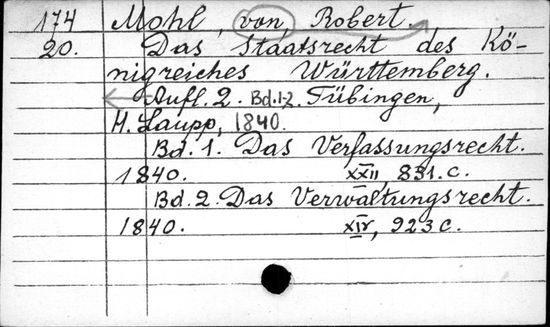 174 Mohl, von, Robert.
20. Das Staatsrecht des Kö-
nigreiches Württemberg.
Aufl. 2. Bd.1-2. Tübingen,
H. Laupp, 1840.
Bd. 1. Das Verfassungsrecht.
1840. XXII, 831.c.
Bd. 2. Das Verwaltungsrecht.
1840. XIV, 923 c.